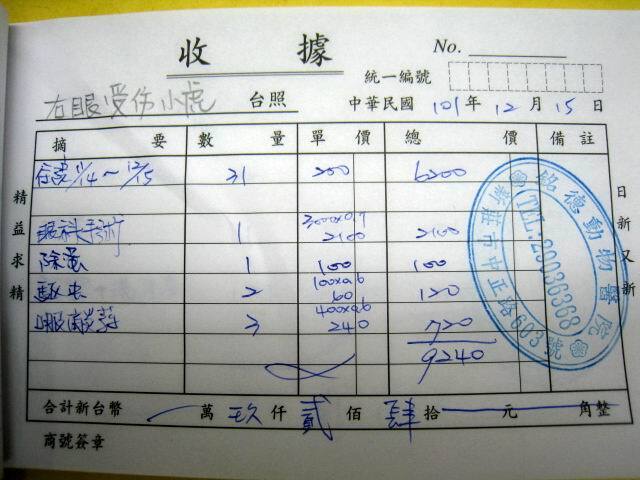 收 據
No.
統一編號
右眼受伤小虎 台照 中華民國 101 年 12 月 15 日
摘 要 數 量 單 價 總 價 備 註
11/14～12/15 31 200 6200
3000x0.7
眼科手術 1 2100 2100
除蚤 1 100 100
100x0.6
驅虫 2 60 120
400x0.6
眼藥 3 240 720
9240
合計新台幣 萬 玖 仟 貳 佰 肆 拾 元 角整
商號簽章
精益求精
日新又新
銘德動物醫院
TEL:29036368
新莊市中正路603號